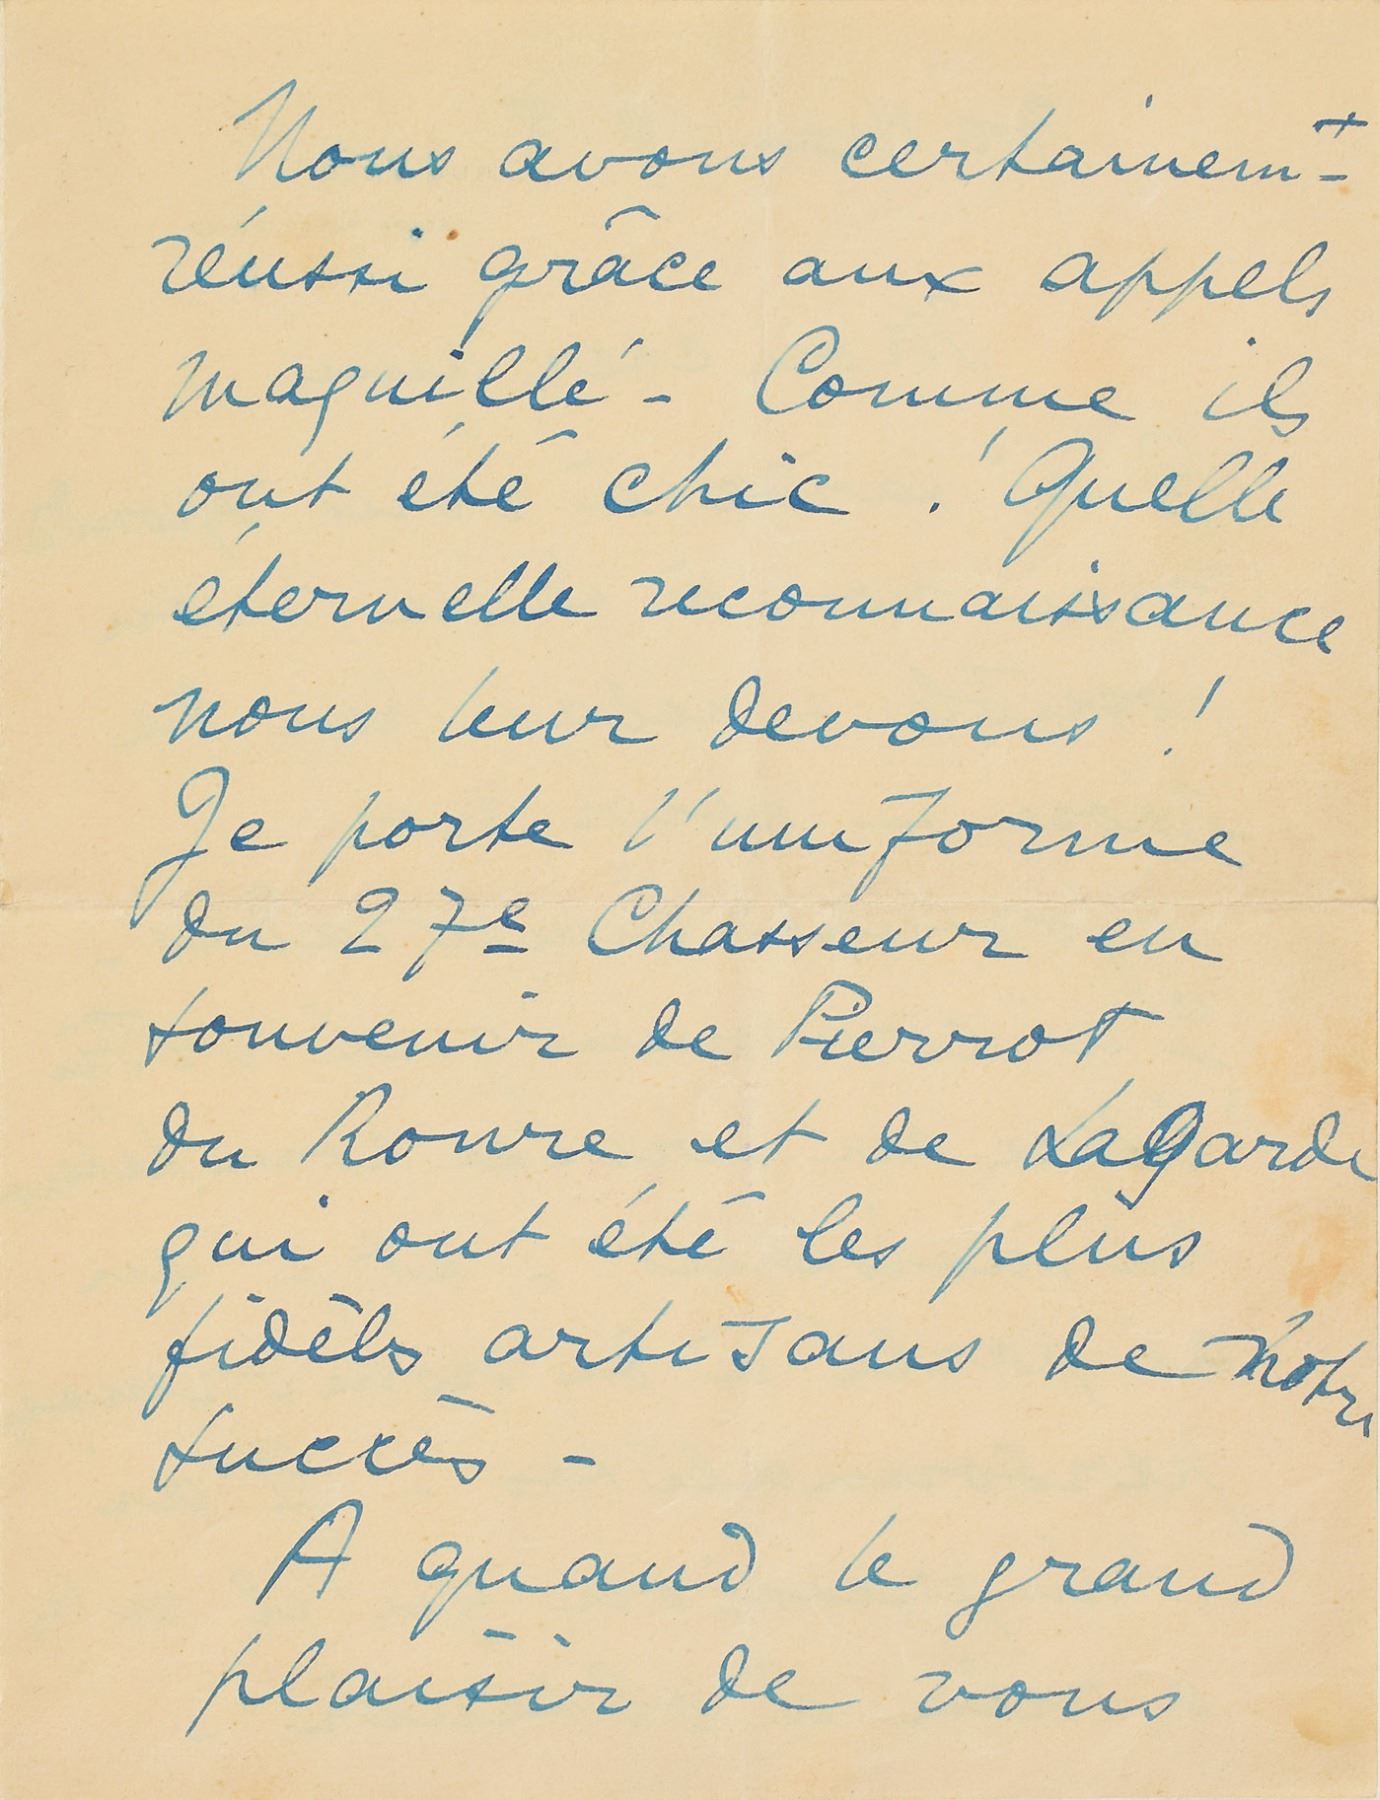 Nous avons certainemt-
réussi grâce aux appels
maquillé - Comme ils
ont été chic ! Quelle
éternelle reconnaissance
nous leur devons !
Je porte l'uniforme
du 27e Chasseur en
souvenir de Pierrot
du Roure et de LaGarde
qui ont été les plus
fidèls artisans de notre
succès -
A quand le grand
plaisir de vous